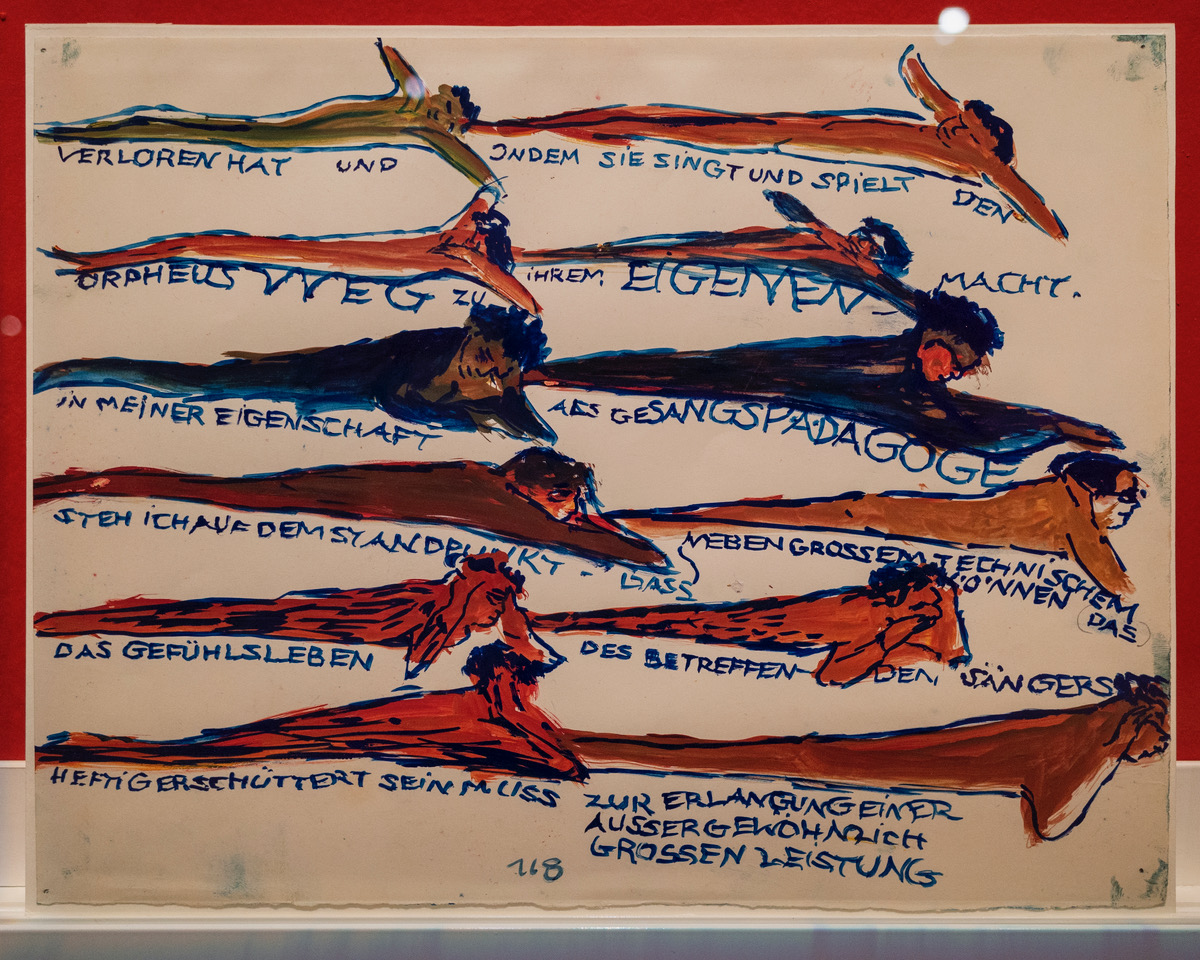 VERLOREN HAT UND INDEM SIE SINGT UND SPIELT DEN
ORPHEUS WEG ZU IHREM EIGENEN MACHT.
IN MEINER EIGENSCHAFT ALS GESANGSPÄDAGOGE
STEH ICH AUF DEM STANDPUNKT - DASS NEBEN GROSSEM TECHNISCHEM
KÖNNEN (DAS)
DAS GEFÜHLSLEBEN DES BETREFFENDEN SÄNGERS
HEFTIG ERSCHÜTTERT SEIN MUSS ZUR ERLANGUNG EINER
AUSSERGEWÖHNLICH
GROSSEN LEISTUNG
118